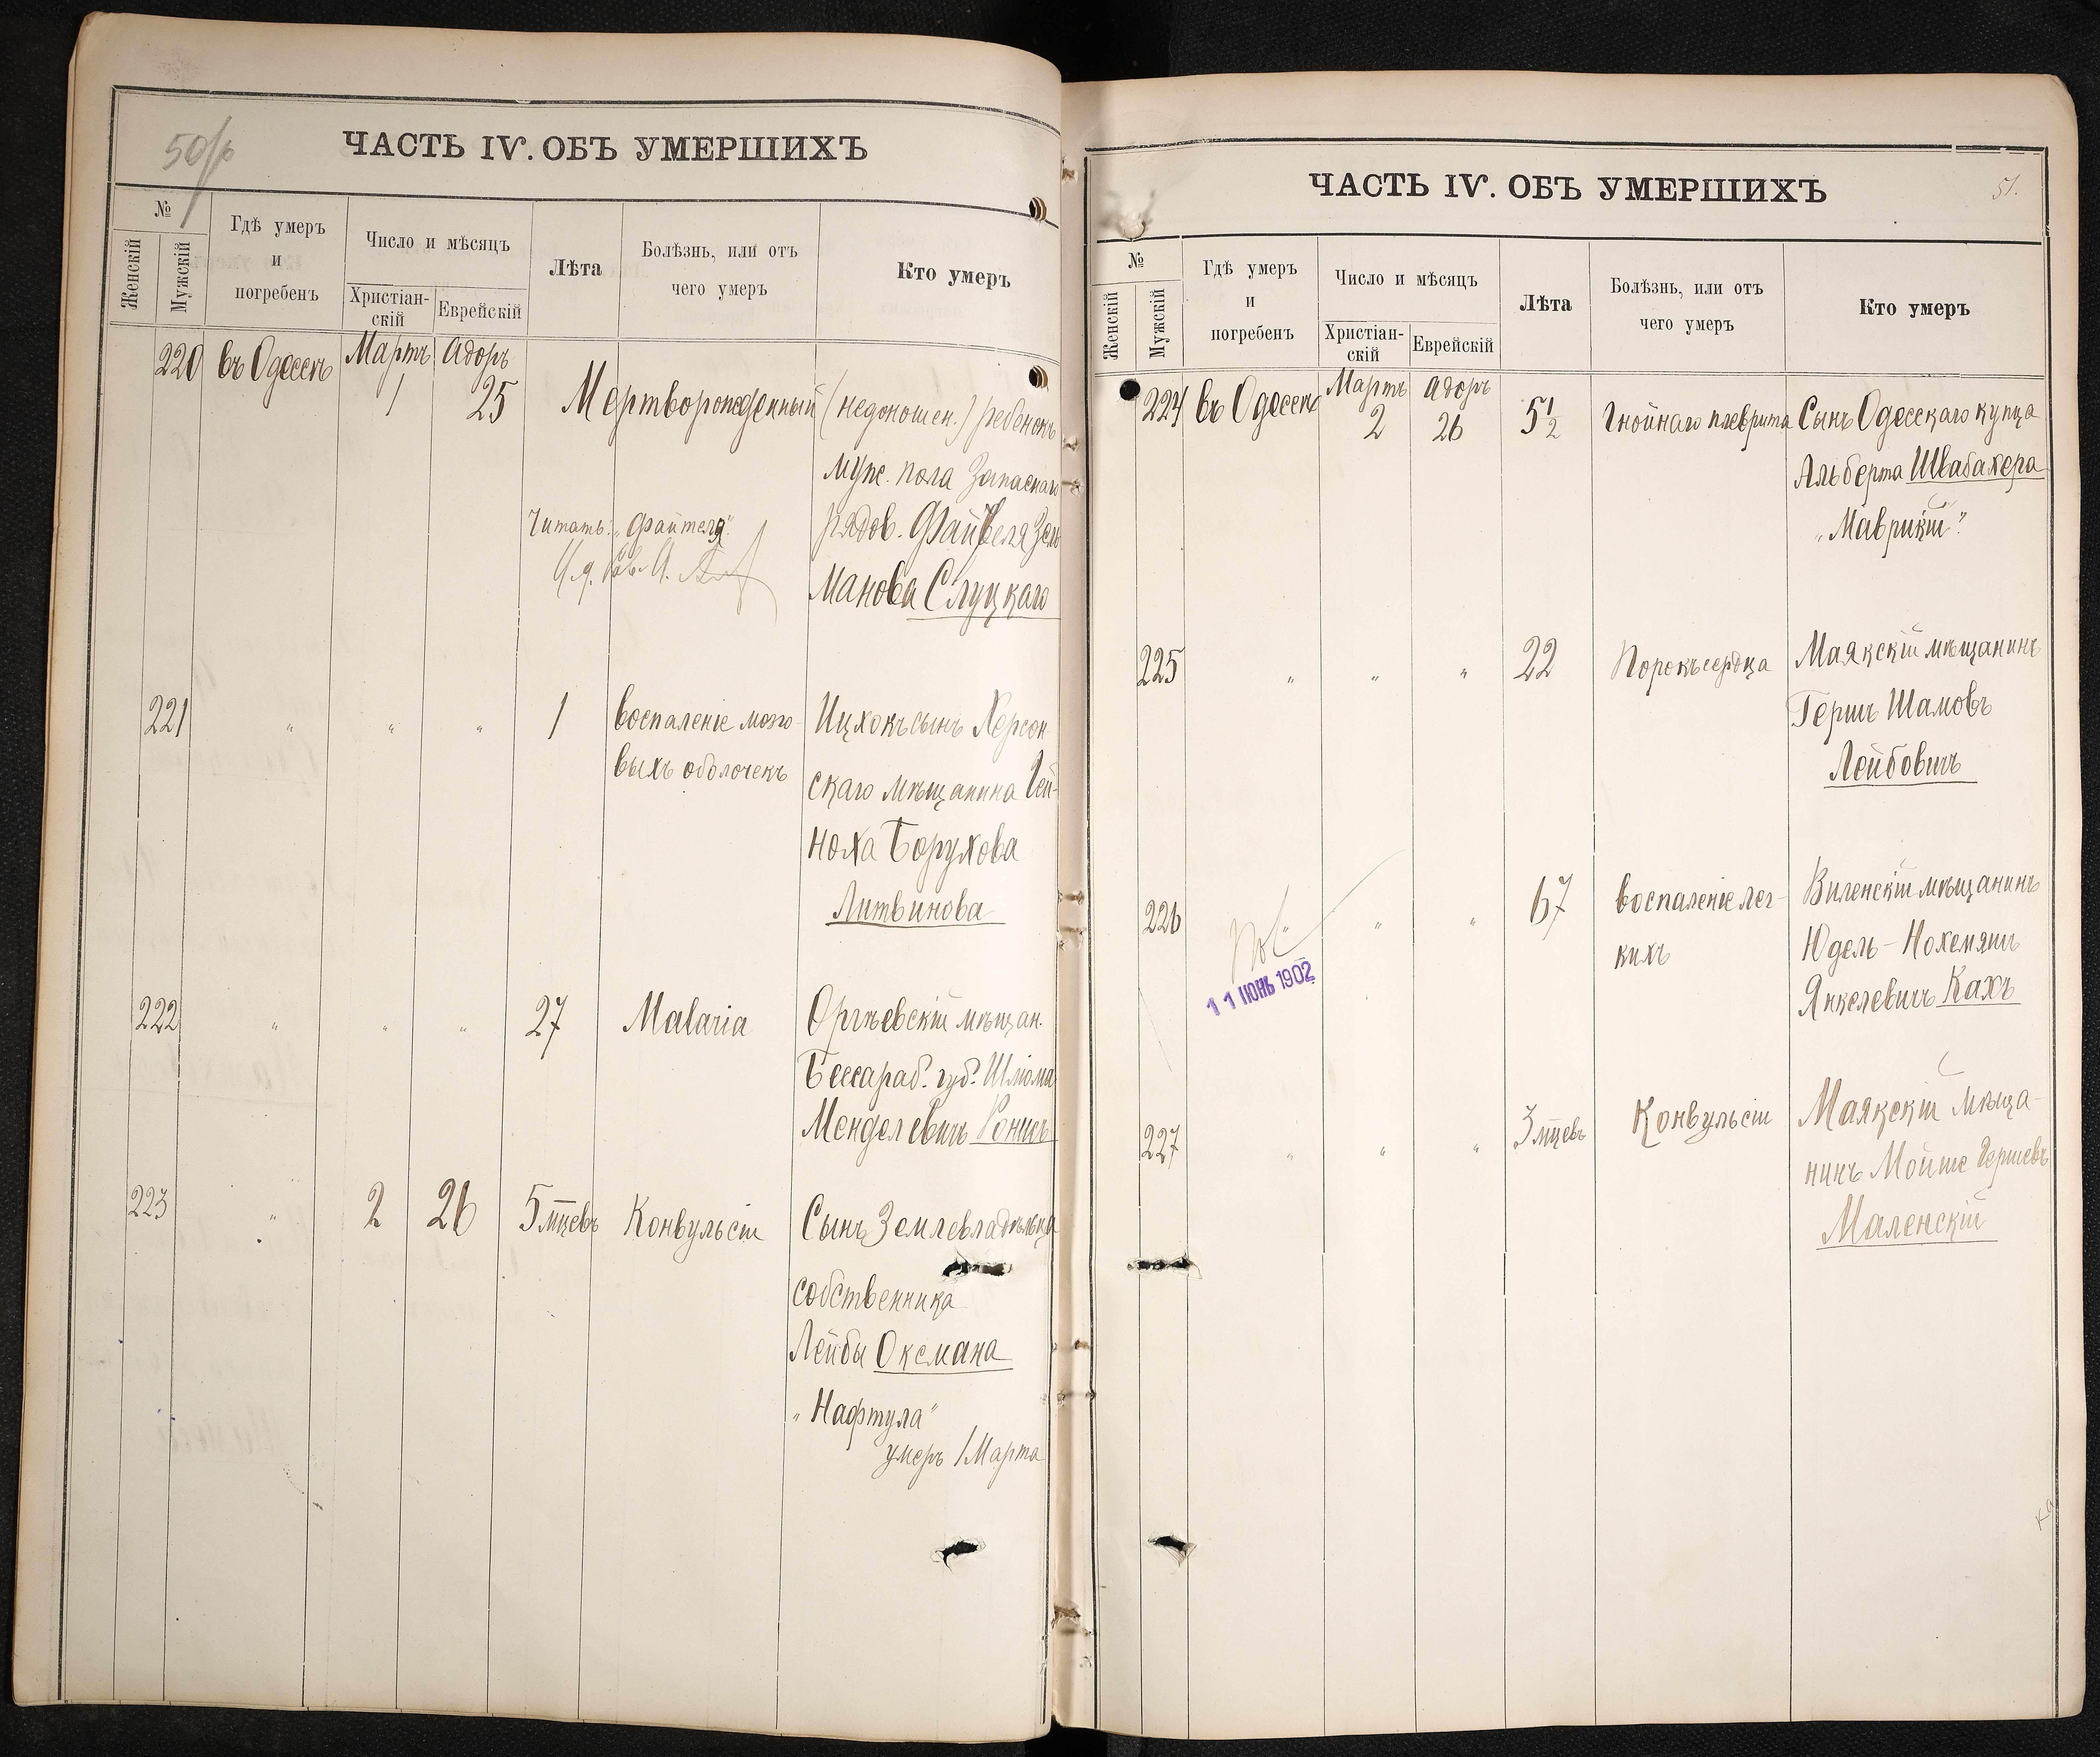 50/р
ЧАСТЬ IV. ОБЪ УМЕРШИХЪ
№
Женскій
Мужскій
Гдѣ умеръ
и
погребенъ
Число и мѣсяцъ
Христіан-
скій
Еврейскій
Лѣта
Болѣзнь, или отъ
чего умеръ
Кто умеръ
220 въ Одессѣ Мартъ 1 Адоръ 25 Мертворожденный (недоношен.) ребенокъ
муж. пола Запаснаго
рядов. Файвеля Зель
Манова Слуцкаго
Читать: „Файтеля"
221 " " " 1 воспаленіе мозго-
выхъ оболочекъ
Ицхокъ сынъ Херсон-
скаго мѣщанина Гей-
ноха Борухова
Литвинова
222 " " " 27 Malaria Оргѣевскій мѣщан.
Бессараб. губ. Шлюма
Менделевичъ Ронисъ
223 " 2 26 5 мцевъ Конвульсіи Сынъ Землевладѣльца
собственника
Лейбы Оксмана
„Нафтула"
умеръ 1 Марта
ЧАСТЬ IV. ОБЪ УМЕРШИХЪ
51.
№
Женскій
Мужскій
Гдѣ умеръ
и
погребенъ
Число и мѣсяцъ
Христіан-
скій
Еврейскій
Лѣта
Болѣзнь, или отъ
чего умеръ
Кто умеръ
224 въ Одессѣ Мартъ 2 Адоръ 26 5 1/2 Гнойнаго плеврита Сынъ Одесскаго купца
Альберта Швабахера
„Маврикій"
225 " " " 22 Порокъ сердца Маякскій мѣщанинъ
Гершъ Шамовъ
Лейбовичъ
226 " " " 67 воспаленіе лег-
кихъ
Виленскій мѣщанинъ
Юдель-Нохемяшъ
Янкелевичъ Кахъ
11 ІЮНЬ 1902
227 " " " 3 мцевъ Конвульсіи Маякскій мѣща-
нинъ Мойше Гершевъ
Маленскій